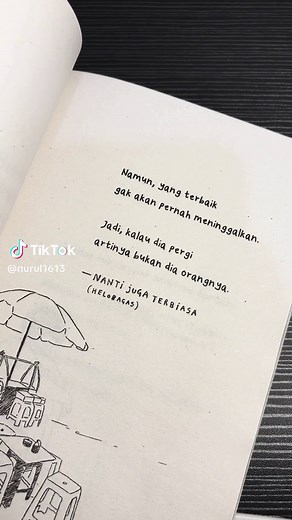 Namun, yang terbaik
gak akan pernah meninggalkan.
Jadi, kalau dia pergi
artinya bukan dia orangnya.
—NANTI JUGA TERBIASA
(HELOBAGAS)
TikTok
@nurul1613